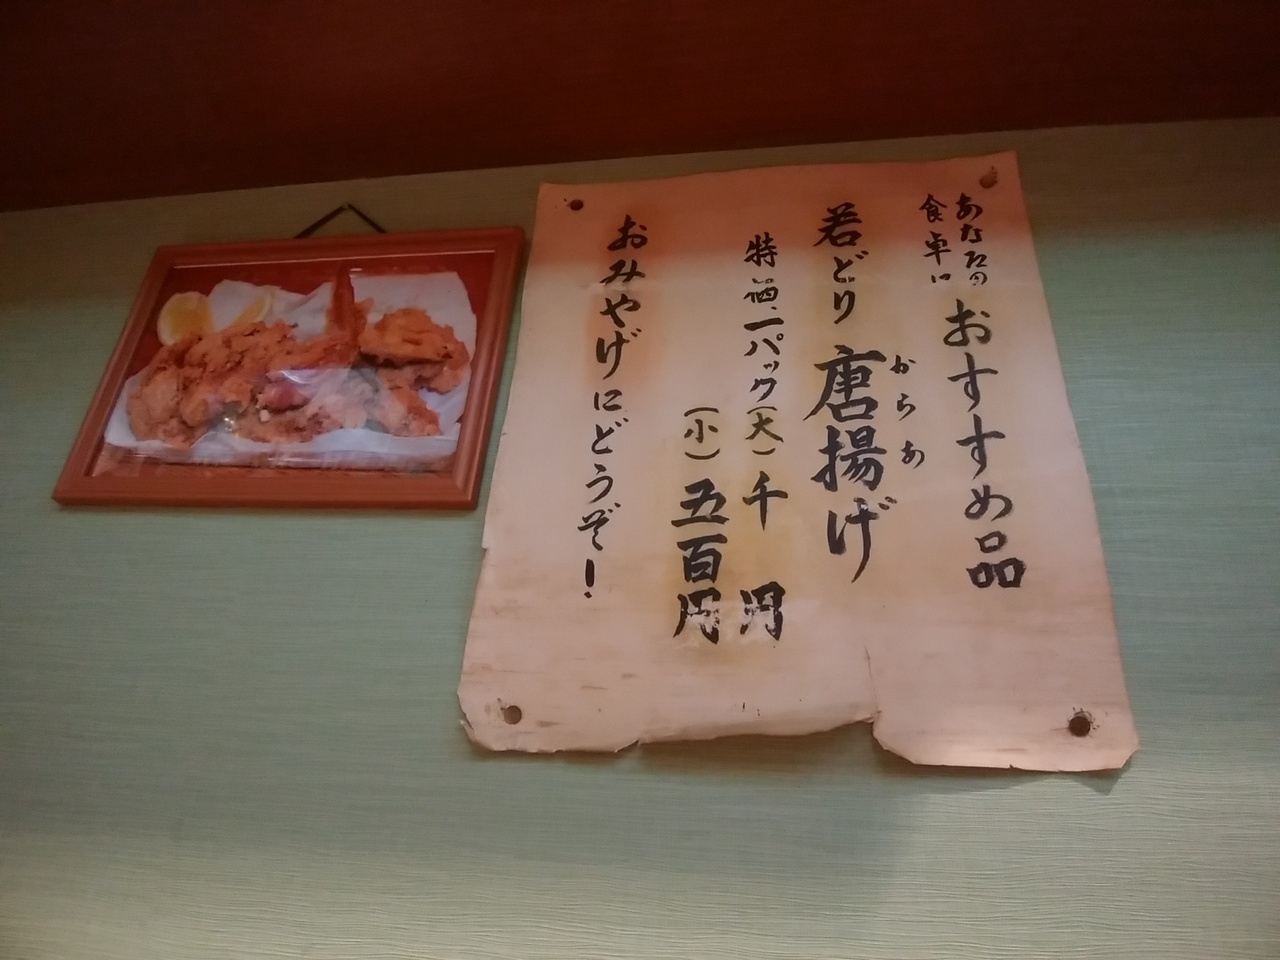 あなたの
食卓に
おすすめ品
からあ
若どり 唐揚げ
特価一パック(大)千 円
(小)五百円
おみやげにどうぞ!